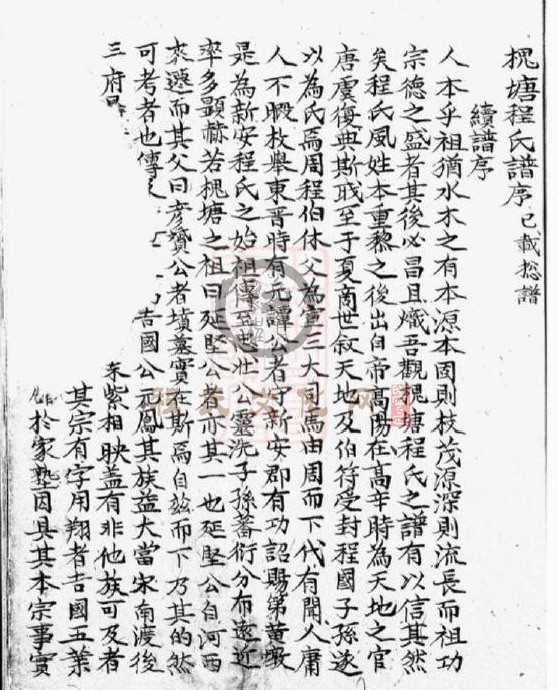 槐塘程氏譜序 已載總譜
續譜序
人本乎祖猶水木之有本源本固則枝茂源深則流長而祖功
宗德之盛者其後必昌且熾吾觀槐塘程氏之譜有以信其然
矣程氏風姓本重黎之後出自帝高陽在高辛時為天地之官
唐虞復典斯職至于夏商世叙天地及伯符受封程國子孫遂
以為氏焉周程伯休父為宣王大司馬由周而下代有聞人庸
人不暇枚舉東晋時有元譚公者守新安郡有功詔賜第黄墩
是為新安程氏之始祖傳至忠壯公靈洗子孫蕃衍分布遠近
率多顯赫若槐塘之祖曰延堅公者亦其一也延堅公自河西
來遷而其父曰彦贇公者墳墓實在斯焉自兹而下乃其的然
可考者也傳 吉國公元鳳其族益大當宋南渡後
三府 朱紫相映盖有非他族可及者
其宗有字用翔者吉國五業
於家塾因具其本宗事實